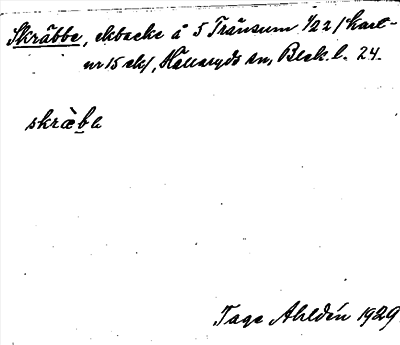 Skräbbe, ekbacke å 5 Tränsum 1/22 /kart-
nr 15 ek/, Hällaryds sn, Blek. l. 24.
skræ̀be
Tage Ahldén 1929